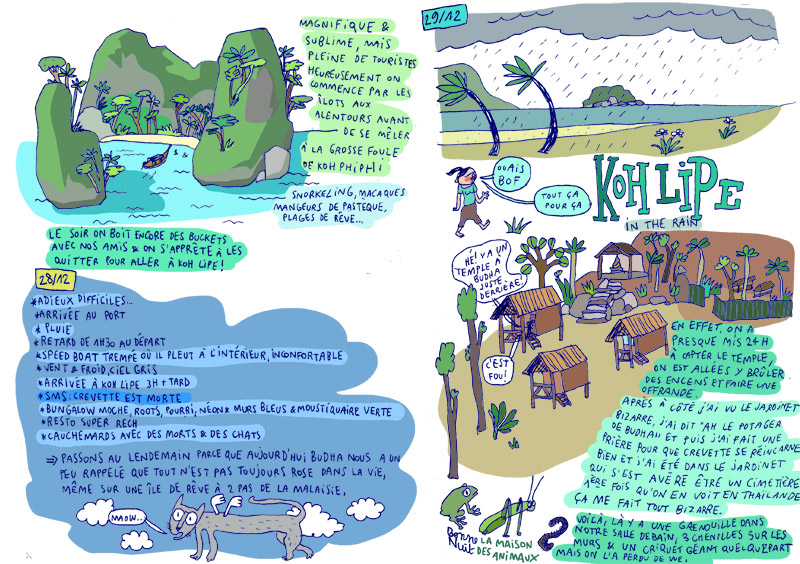 MAGNIFIQUE &
SUBLIME, MAIS
PLEINE DE TOURISTES
HEUREUSEMENT ON
COMMENCE PAR LES
ÎLOTS AUX
ALENTOURS AVANT
DE SE MÊLER
À LA GROSSE FOULE
DE KOH PHIPHI
SNORKELING, MACAQUES
MANGEURS DE PASTÈQUE,
PLAGES DE RÊVE...
LE SOIR ON BOIT ENCORE DES BUCKETS
AVEC NOS AMIS & ON S'APPRÊTE À LES
QUITTER POUR ALLER À KOH LIPE!
28/12
*ADIEUX DIFFICILES...
*ARRIVÉE AU PORT
* PLUIE
*RETARD DE 1H30 AU DÉPART
*SPEED BOAT TREMPÉ OÙ IL PLEUT À L'INTÉRIEUR, INCONFORTABLE
* VENT & FROID, CIEL GRIS
*ARRIVÉE À KOH LIPE 3H + TARD
*SMS: CREVETTE EST MORTE
*BUNGALOW MOCHE, ROOTS, POURRI, NÉON & MURS BLEUS & MOUSTIQUAIRE VERTE
*RESTO SUPER RECH
*CAUCHEMARDS AVEC DES MORTS & DES CHATS
⇒ PASSONS AU LENDEMAIN PARCE QUE AUJOURD'HUI BUDHA NOUS A UN
PEU RAPPELÉ QUE TOUT N'EST PAS TOUJOURS ROSE DANS LA VIE,
MÊME SUR UNE ÎLE DE RÊVE À 2 PAS DE LA MALAISIE.
MAOW...
29/12
OOAIS
BOF
TOUT ÇA
POUR ÇA
KOH LIPE
IN THE RAIN
HÉ! Y A UN
TEMPLE À
BUDHA
JUSTE
DERRIÈRE!
C'EST
FOU!
EN EFFET, ON A
PRESQUE MIS 24H
À CAPTER LE TEMPLE,
ON EST ALLÉES Y BRÛLER
DES ENCENS ET FAIRE UNE
OFFRANDE.
APRÈS À CÔTÉ J'AI VU LE JARDINET
BIZARRE, J'AI DIT "AH LE POTAGER
DE BUDHA" ET PUIS J'AI FAIT UNE
PRIÈRE POUR QUE CREVETTE SE RÉINCARNE
BIEN ET J'AI ÉTÉ DANS LE JARDINET
QUI S'EST AVÉRÉ ÊTRE UN CIMETIÈRE
1ÈRE FOIS QU'ON EN VOIT EN THAÏLANDE
ÇA ME FAIT TOUT BIZARRE.
VOILÀ, LÀ Y A UNE GRENOUILLE DANS
NOTRE SALLE DE BAIN, 3 CHENILLES SUR LES
MURS & UN CRIQUET GÉANT QUELQUEPART
MAIS ON L'A PERDU DE VUE.
BONNE
NUIT
LA MAISON
DES ANIMAUX